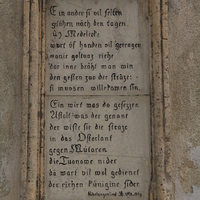 Ein under si vil selten
gislichen nach den tagen
ůz Medelicke
wart uf handen vil getragen
manic goltvaz riche
dar inne braht man win
den gesten zuo der straze:
si muosen willekomen sin.
Ein wirt was da gesezzen
Astolt was der genant
der wiste sie die straze
in das Osterlant
gegen Mutaren
die Tuonowe nider
da wart vil wol gedienet
der richen künigine sider